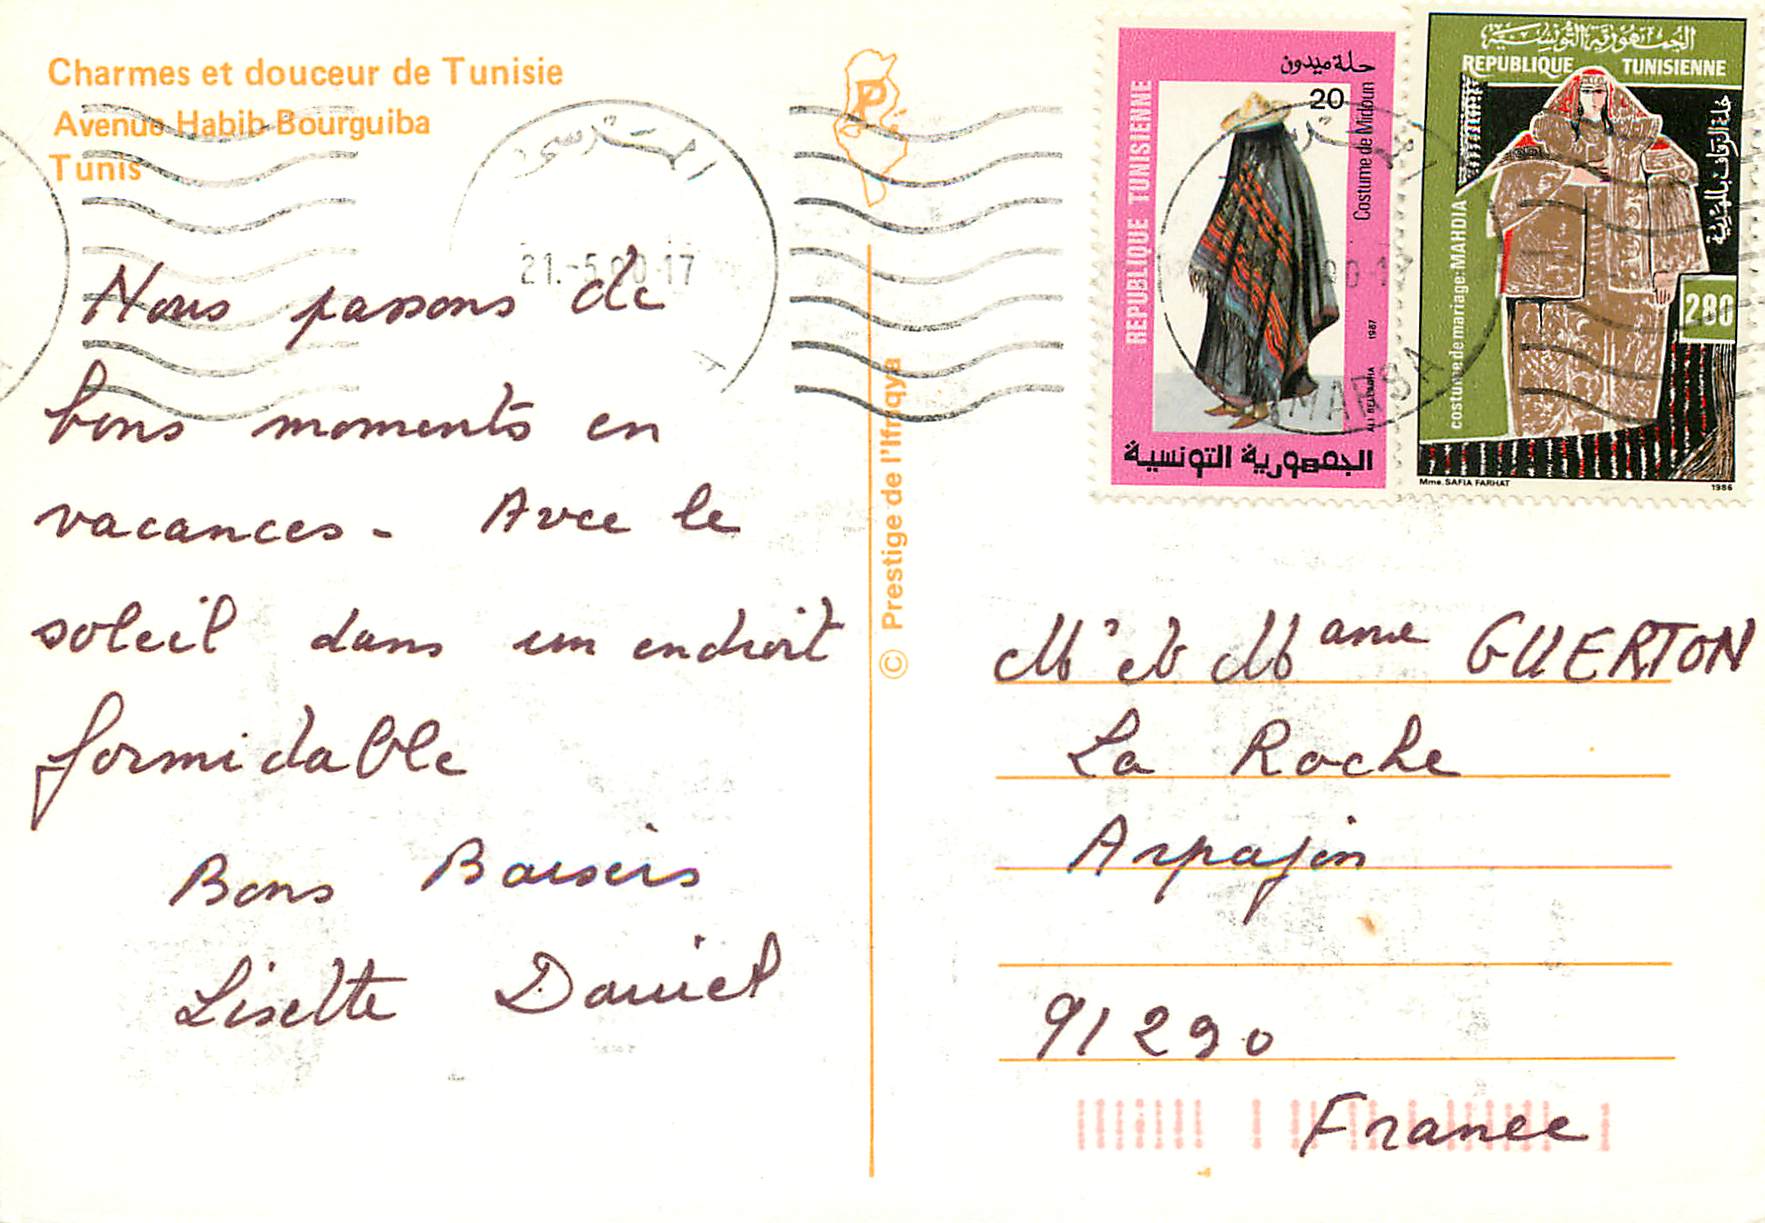 Charmes et douceur de Tunisie
Avenue Habib Bourguiba
Tunis
P
المرسى
21.-5.90-17
Nous passons de
bons moments en
vacances - Avec le
soleil dans un endroit
formidable
Bons Baisers
Lisette Daniel
© Prestige de l'Ifriqya
حلة ميدون
20
Costume de Midoun
REPUBLIQUE TUNISIENNE
1987
MARSA
الجمهورية التونسية
الجمهورية التونسية
REPUBLIQUE TUNISIENNE
costume de mariage: MAHDIA
280
Mme. SAFIA FARHAT
1986
Mr et Mame GUERTON
La Roche
Arpajon
91290
France